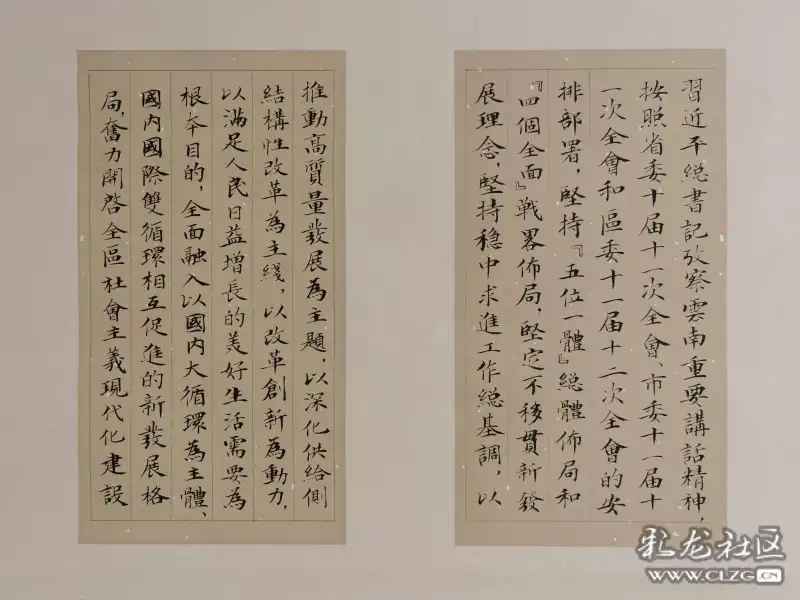 習近平總書記攷察雲南重要講話精神，
按照省委十届十一次全會、市委十一届十
一次全會和區委十一届十二次全會的安
排部署，堅持『五位一體』總體佈局和
『四個全面』戰畧佈局，堅定不移貫新發
展理念，堅持穩中求進工作總基調，以
推動高質量發展為主題，以深化供給側
結構性改革為主綫，以改革創新為動力，
以滿足人民日益增長的美好生活需要為
根本目的，全面融入以國内大循環為主體、
國内國際雙循環相互促進的新發展格
局，奮力開啓全區社會主義現代化建設
彩龙社区
WWW.CLZG.CN